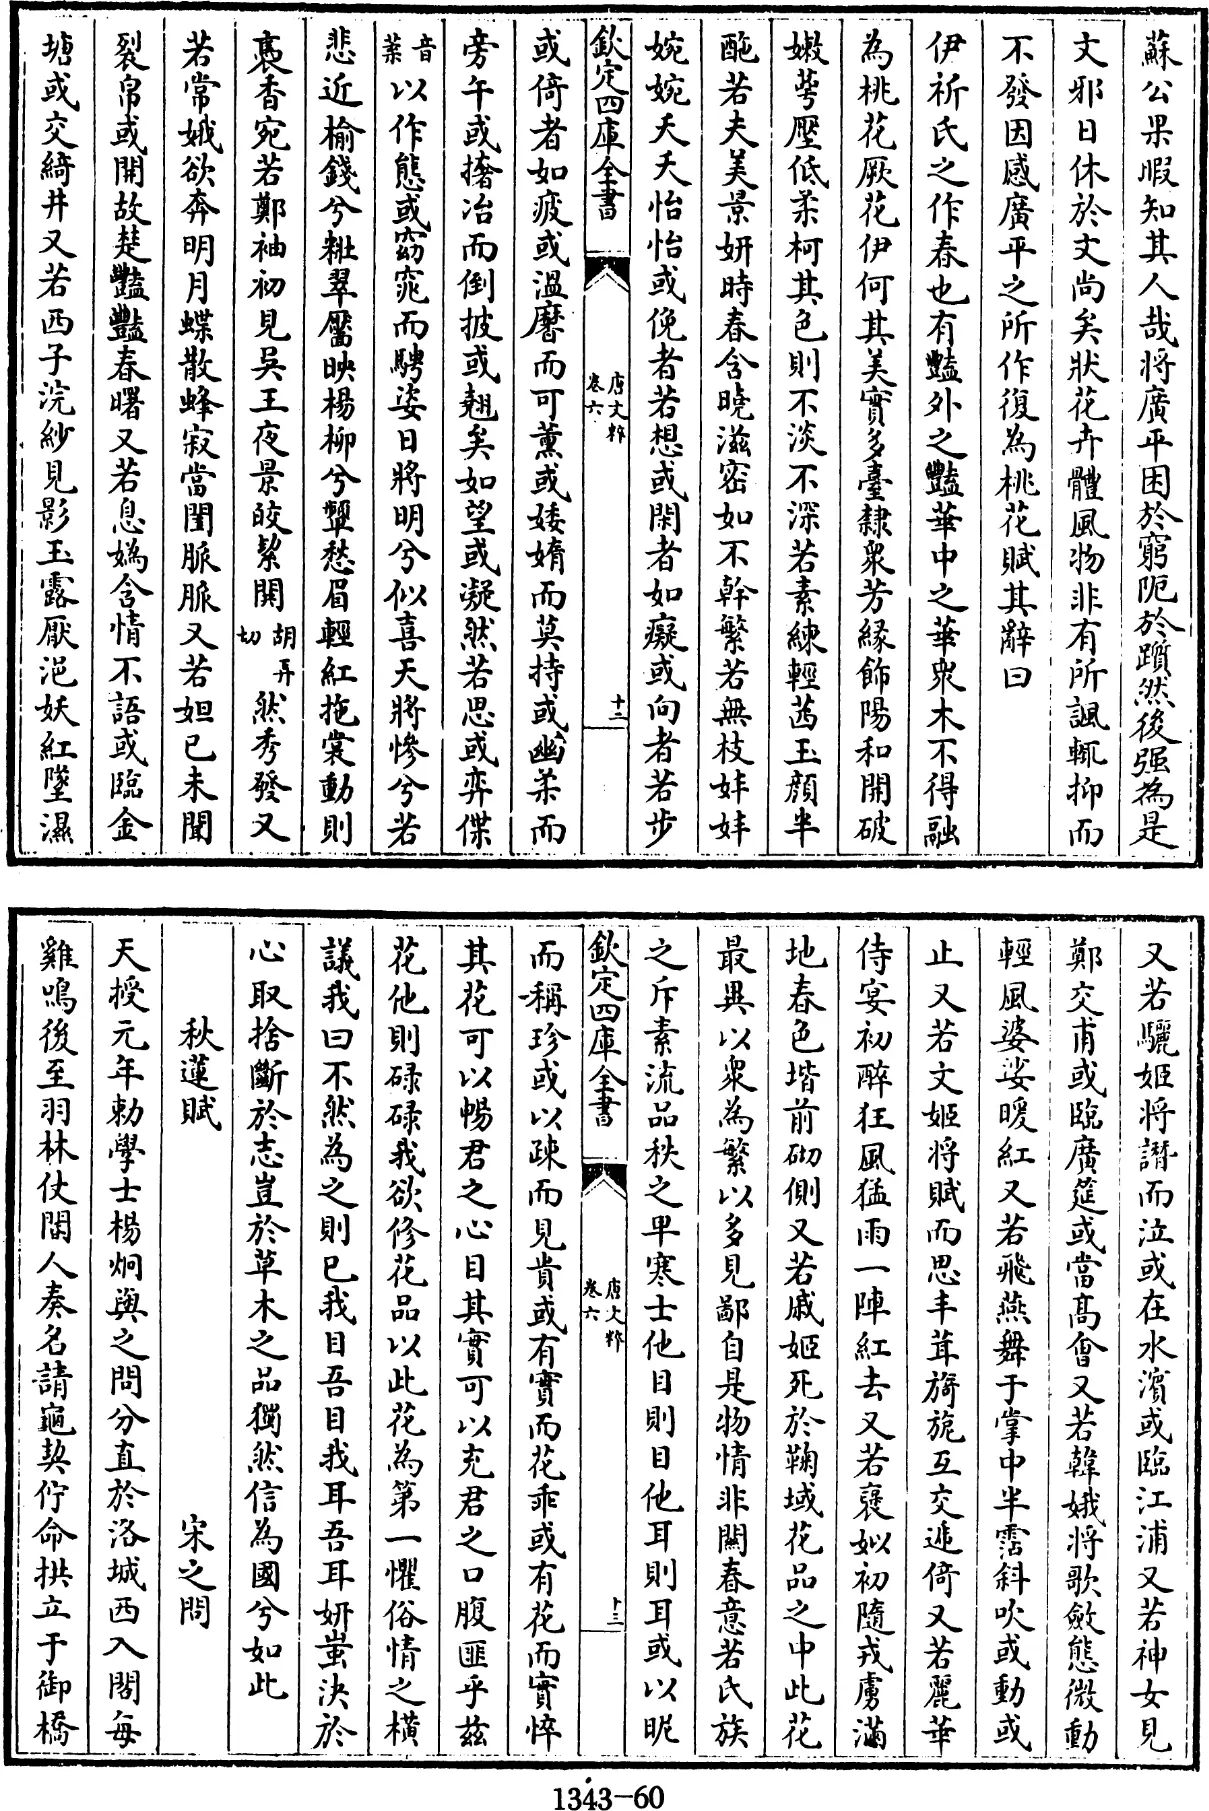 蘇公果暇知其人哉將廣平困於窮阨於躓然後强為是
文邪日休於文尚矣狀花卉體風物非有所諷輒抑而
不發因感廣平之所作復為桃花賦其辭曰
伊祈氏之作春也有豔外之豔華中之華衆木不得融
為桃花厥花伊何其美實多臺隸衆芳緣飾陽和開破
嫩萼壓低柔柯其色則不淡不深若素練輕茜玉顔半
酡若夫美景妍時春含曉滋密如不幹繁若無枝姅姅
婉婉夭夭怡怡或俛者若想或閑者如癡或向者若步
欽定四庫全書
唐文粹
卷六
十二
或倚者如疲或溫黁而可薰或婑媠而莫持或幽柔而
旁午或撦冶而倒披或翹矣如望或凝然若思或弈傑
音
葉
以作態或窈窕而騁姿日將明兮似喜天將慘兮若
悲近榆錢兮粧翠靨映楊柳兮顰愁眉輕紅拖裳動則
裛香宛若鄭袖初見吳王夜景皎絜閧
胡弄
切
然秀發又
若常娥欲奔明月蝶散蜂寂當閨脈脈又若妲已未聞
裂帛或開故楚豔豔春曙又若息媯含情不語或臨金
塘或交綺井又若西子浣紗見影玉露厭浥妖紅墜濕
又若驪姬將譖而泣或在水濱或臨江浦又若神女見
鄭交甫或臨廣筵或當高會又若韓娥將歌斂態微動
輕風婆娑暖紅又若飛燕舞于掌中半霑斜吹或動或
止又若文姬將賦而思丰茸旖旎互交遞倚又若麗華
侍宴初醉狂風猛雨一陣紅去又若褒姒初隨戎虜滿
地春色堦前砌側又若戚姬死於鞠域花品之中此花
最異以衆為繁以多見鄙自是物情非關春意若氏族
之斥素流品秩之卑寒士他目則目他耳則耳或以昵
欽定四庫全書
唐文粹
卷六
十三
而稱珍或以疎而見貴或有實而花乖或有花而實悴
其花可以暢君之心目其實可以充君之口腹匪乎兹
花他則碌碌我欲修花品以此花為第一懼俗情之横
議我曰不然為之則已我目吾目我耳吾耳妍蚩決於
心取捨斷於志豈於草木之品獨然信為國兮如此
秋蓮賦 宋之問
天授元年勅學士楊炯與之問分直於洛城西入閣每
雞鳴後至羽林仗閽人奏名請龜契佇命拱立于御橋
1343-60